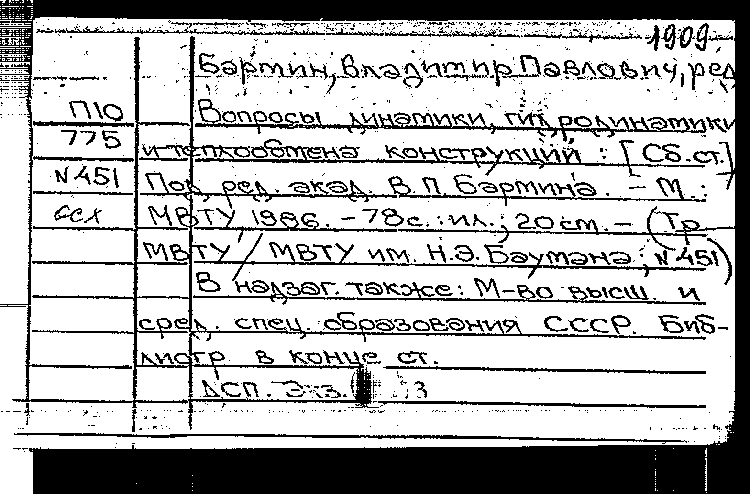 1909.
Бармин, Владимир Павлович, ред
П10 Вопросы динамики, гидродинамики
775 и теплообмена конструкций : [Сб. ст.]
N451 Под ред. акад. В. П. Бармина. - М. :
ссх МВТУ 1986. - 78 с. : ил. ; 20 см. - (Тр
МВТУ / МВТУ им. Н.Э. Баумана ; N 451)
В надзаг. также: М-во высш. и
сред. спец. образования СССР. Биб-
лиогр в конце ст.
ДСП. Экз.